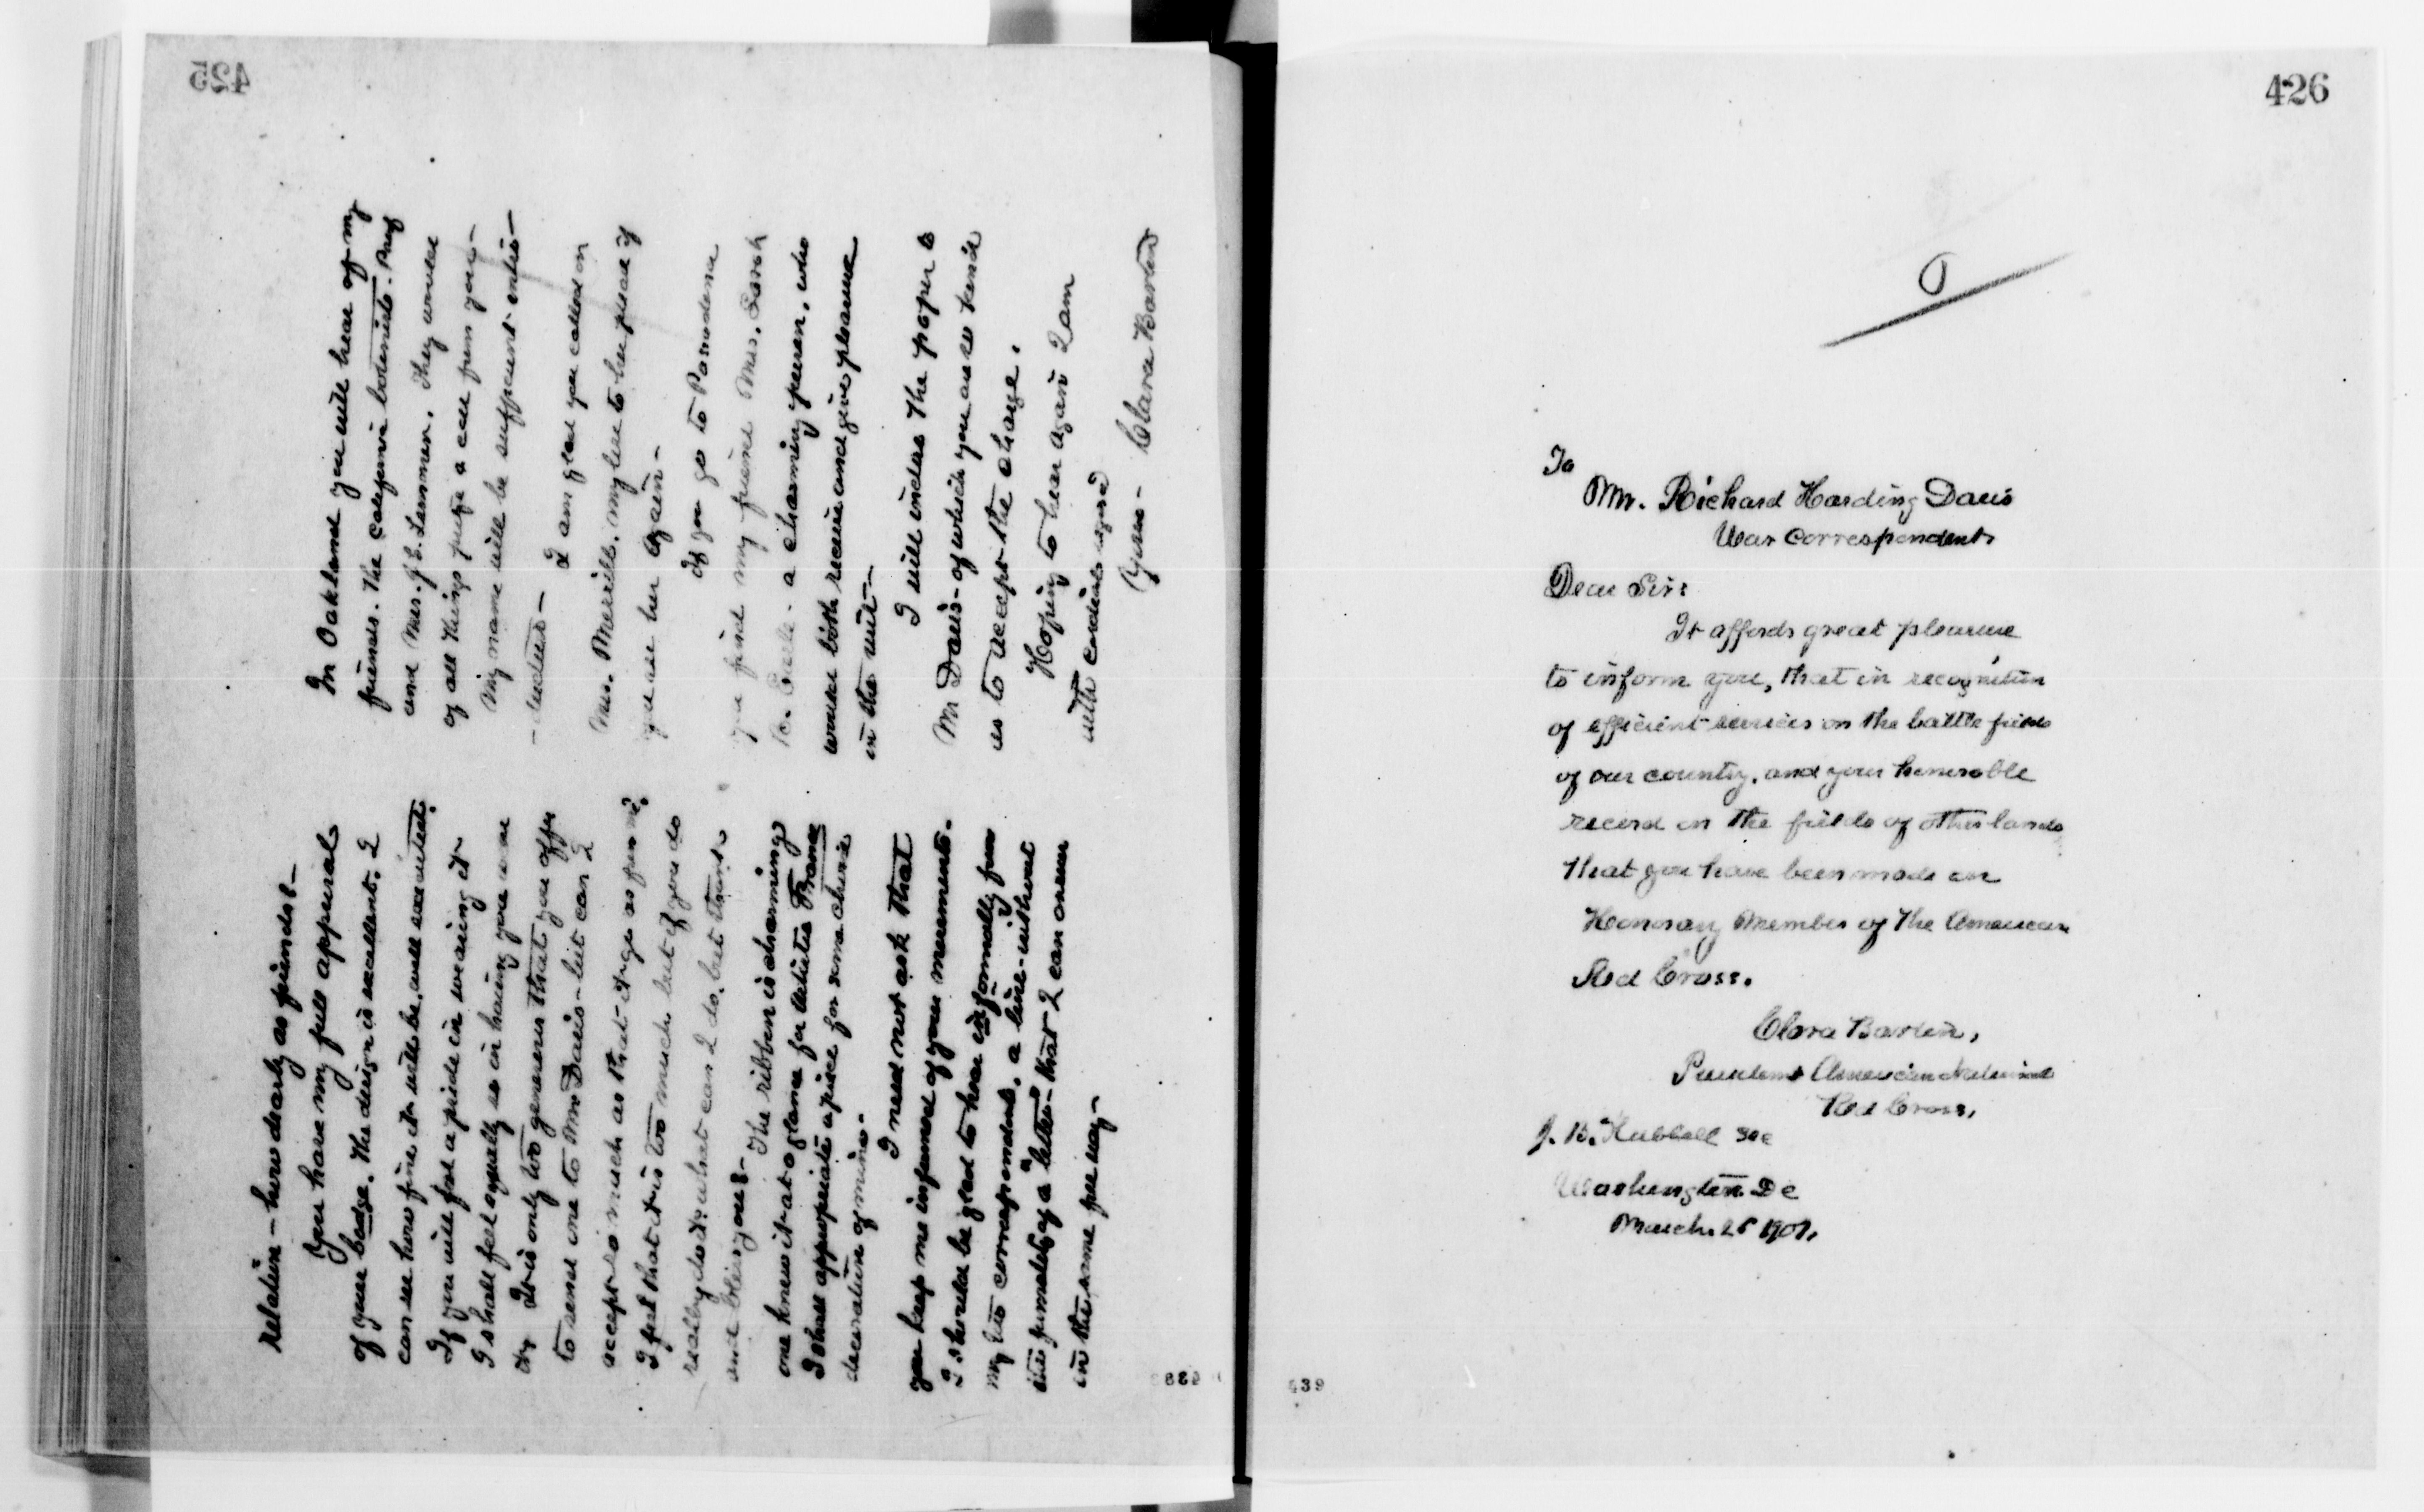 425
relation - how dearly as friends! -
You have my full approval
of your badge. The design is excellent. I
can see how fine it will be, well executed.
If you will feel a pride in wearing it
I shall feel equally so in having you wear
it. It is only too generous that you offer
to send one to Mr Davis - but can I
accept so much as that - it go as from me?
I feel that it is too much, but if you do
really do it: what can I do, but thank
and bless you! -
The ribbon is charming
one knew it at a glance for artistic France
I shall appropriate a piece for some choice
decoration of mine.
I need not ask that
you keep me informed of your movements.
I should be glad to hear informally from
my two correspondents, a line - without
the formality of a "letter" - that I can answer
in the same free way -
In Oakland you will hear of my
friends. The California botanists. Prof
and Mrs. J. G. Lemmon. They would
of all things prize a call from you -
My name will be sufficient intro-
- duction -
I am glad you called on
Mrs. Merrill. My love to her please if
you see her again -
If you go to Pasadena
you find my friend Mrs. Sarah
K. Earle - a charming person, who
would both receive and give pleasure
in the visit -
I will inclose the paper to
Mr Davis - of which you are so kind
as to accept the charge.
Hoping to hear again I am
with cordial regard
Yours - Clara Barton
438
426
To
Mr. Richard Harding Davis
War Correspondent
Dear Sir:
It affords great pleasure
to inform you, that in recognition
of efficient services on the battle fields
of our country, and your honorable
record on the fields of other lands
that you have been made an
Honorary Member of the American
Red Cross.
Clara Barton,
President American National
Red Cross,
J. B. Hubbell Sec
Washington D C
March 25 1901.
439